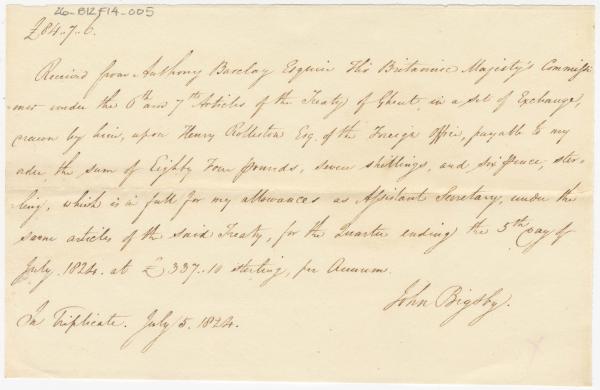 26-B12F14-005
£84..7..6.
Received from Anthony Barclay Esquire His Britannic Majesty's Commissi
oner under the 6th and 7th Articles of the Treaty of Ghent, in a set of Exchange,
drawn by him, upon Henry Rolleston Esq. of the Foreign Office, payable to my
order, the sum of Eighty Four pounds, seven shillings, and six pence, ster-
ling, which is in full for my allowances as Assistant Secretary, under the
same articles of the said Treaty, for the Quarter ending the 5th day of
July. 1824. at £337..10 sterling, per Annum.
John Bigsby.
In Triplicate. July 5. 1824.